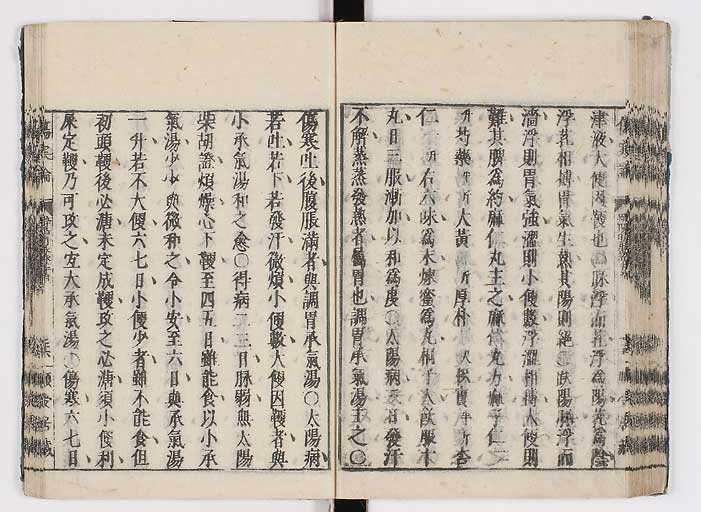 津液大便因鞕也○脉浮而芤浮為陽芤為陰
浮芤相摶胃氣生熱其陽則絕○趺陽脉浮而
濇浮則胃氣強濇則小便數浮濇相摶大便則
難其脾為約麻仁丸主之麻仁丸方麻子仁二
升芍藥半斤大黃一斤厚朴一尺枳實半斤杏
仁一升右六味為末煉蜜為丸桐子大飲服十
丸日三服漸加以和為度○太陽病三日發汗
不解蒸蒸發熱者屬胃也調胃承氣湯主之○
傷寒吐後腹脹滿者與調胃承氣湯○太陽病
若吐若下若發汗微煩小便數大便因鞕者與
小承氣湯和之愈○得病二三日脉弱無太陽
柴胡證煩燥心下鞕至四五日雖能食以小承
氣湯少少與微和之令小安至六日與承氣湯
一升若不大便六七日小便少者雖不能食但
初頭鞕後必溏未定成鞕攻之必溏須小便利
屎定鞕乃可攻之宜大承氣湯○傷寒六七日